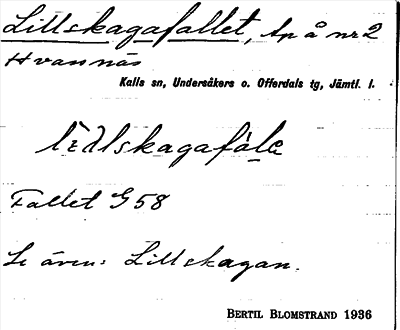 Lillskagafallet, tp å nr 2
Hvannäs
Kalls sn, Undersåkers o. Offerdals tg, Jämtl. l.
Fallet G58
Se även: Lillskagan.
BERTIL BLOMSTRAND 1936